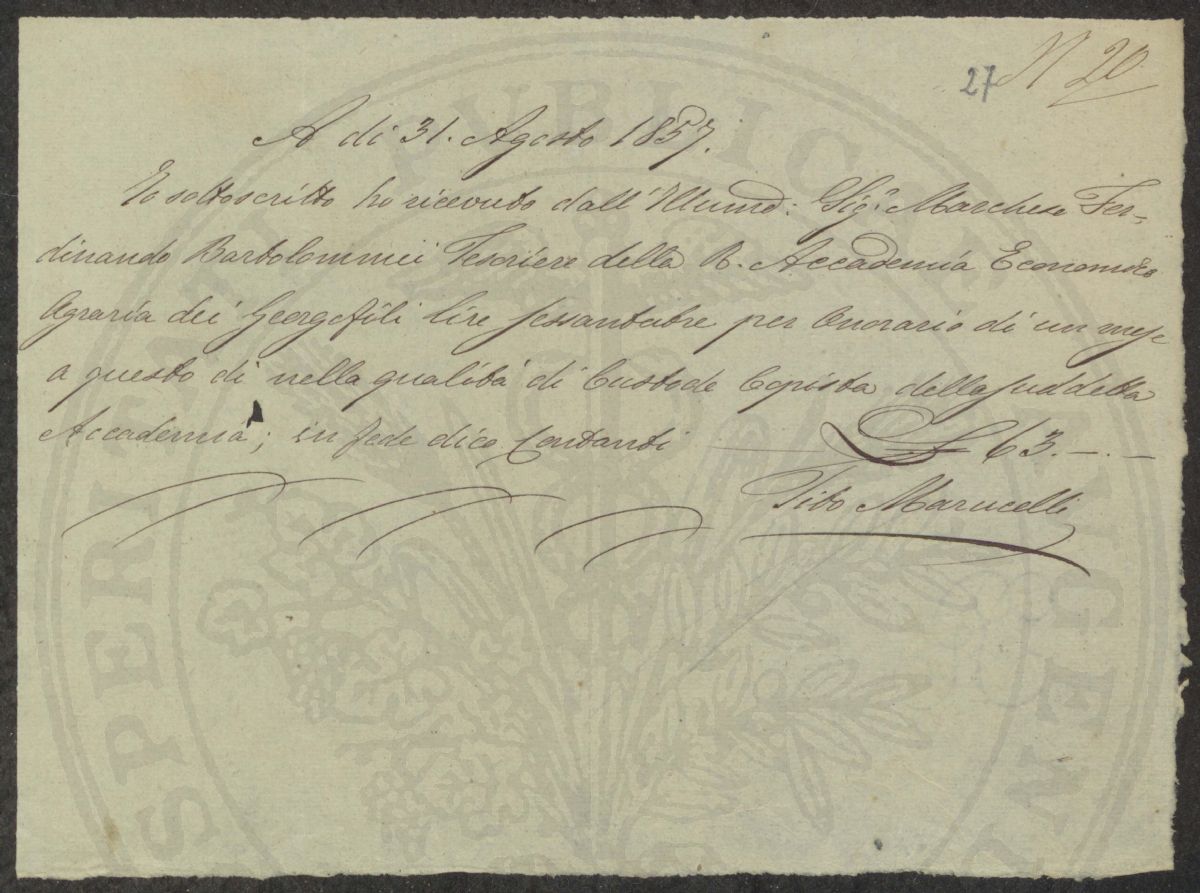 27 N 20
A dì 31. Agosto 1857.
Io sottoscritto ho ricevuto dall' Illumo: Sigr. Marchese Fer-
dinando Bartolommei Tesoriere della R. Accademia Economico
Agraria dei Georgofili lire sessantatre per Onorario di un mese
a questo dì nella qualità di Custode Copista della suddetta
Accademia; in fede dico Contanti £ 63.-.-
Tito Marucelli
PROSPERITATI PUBLICAE AUGEN